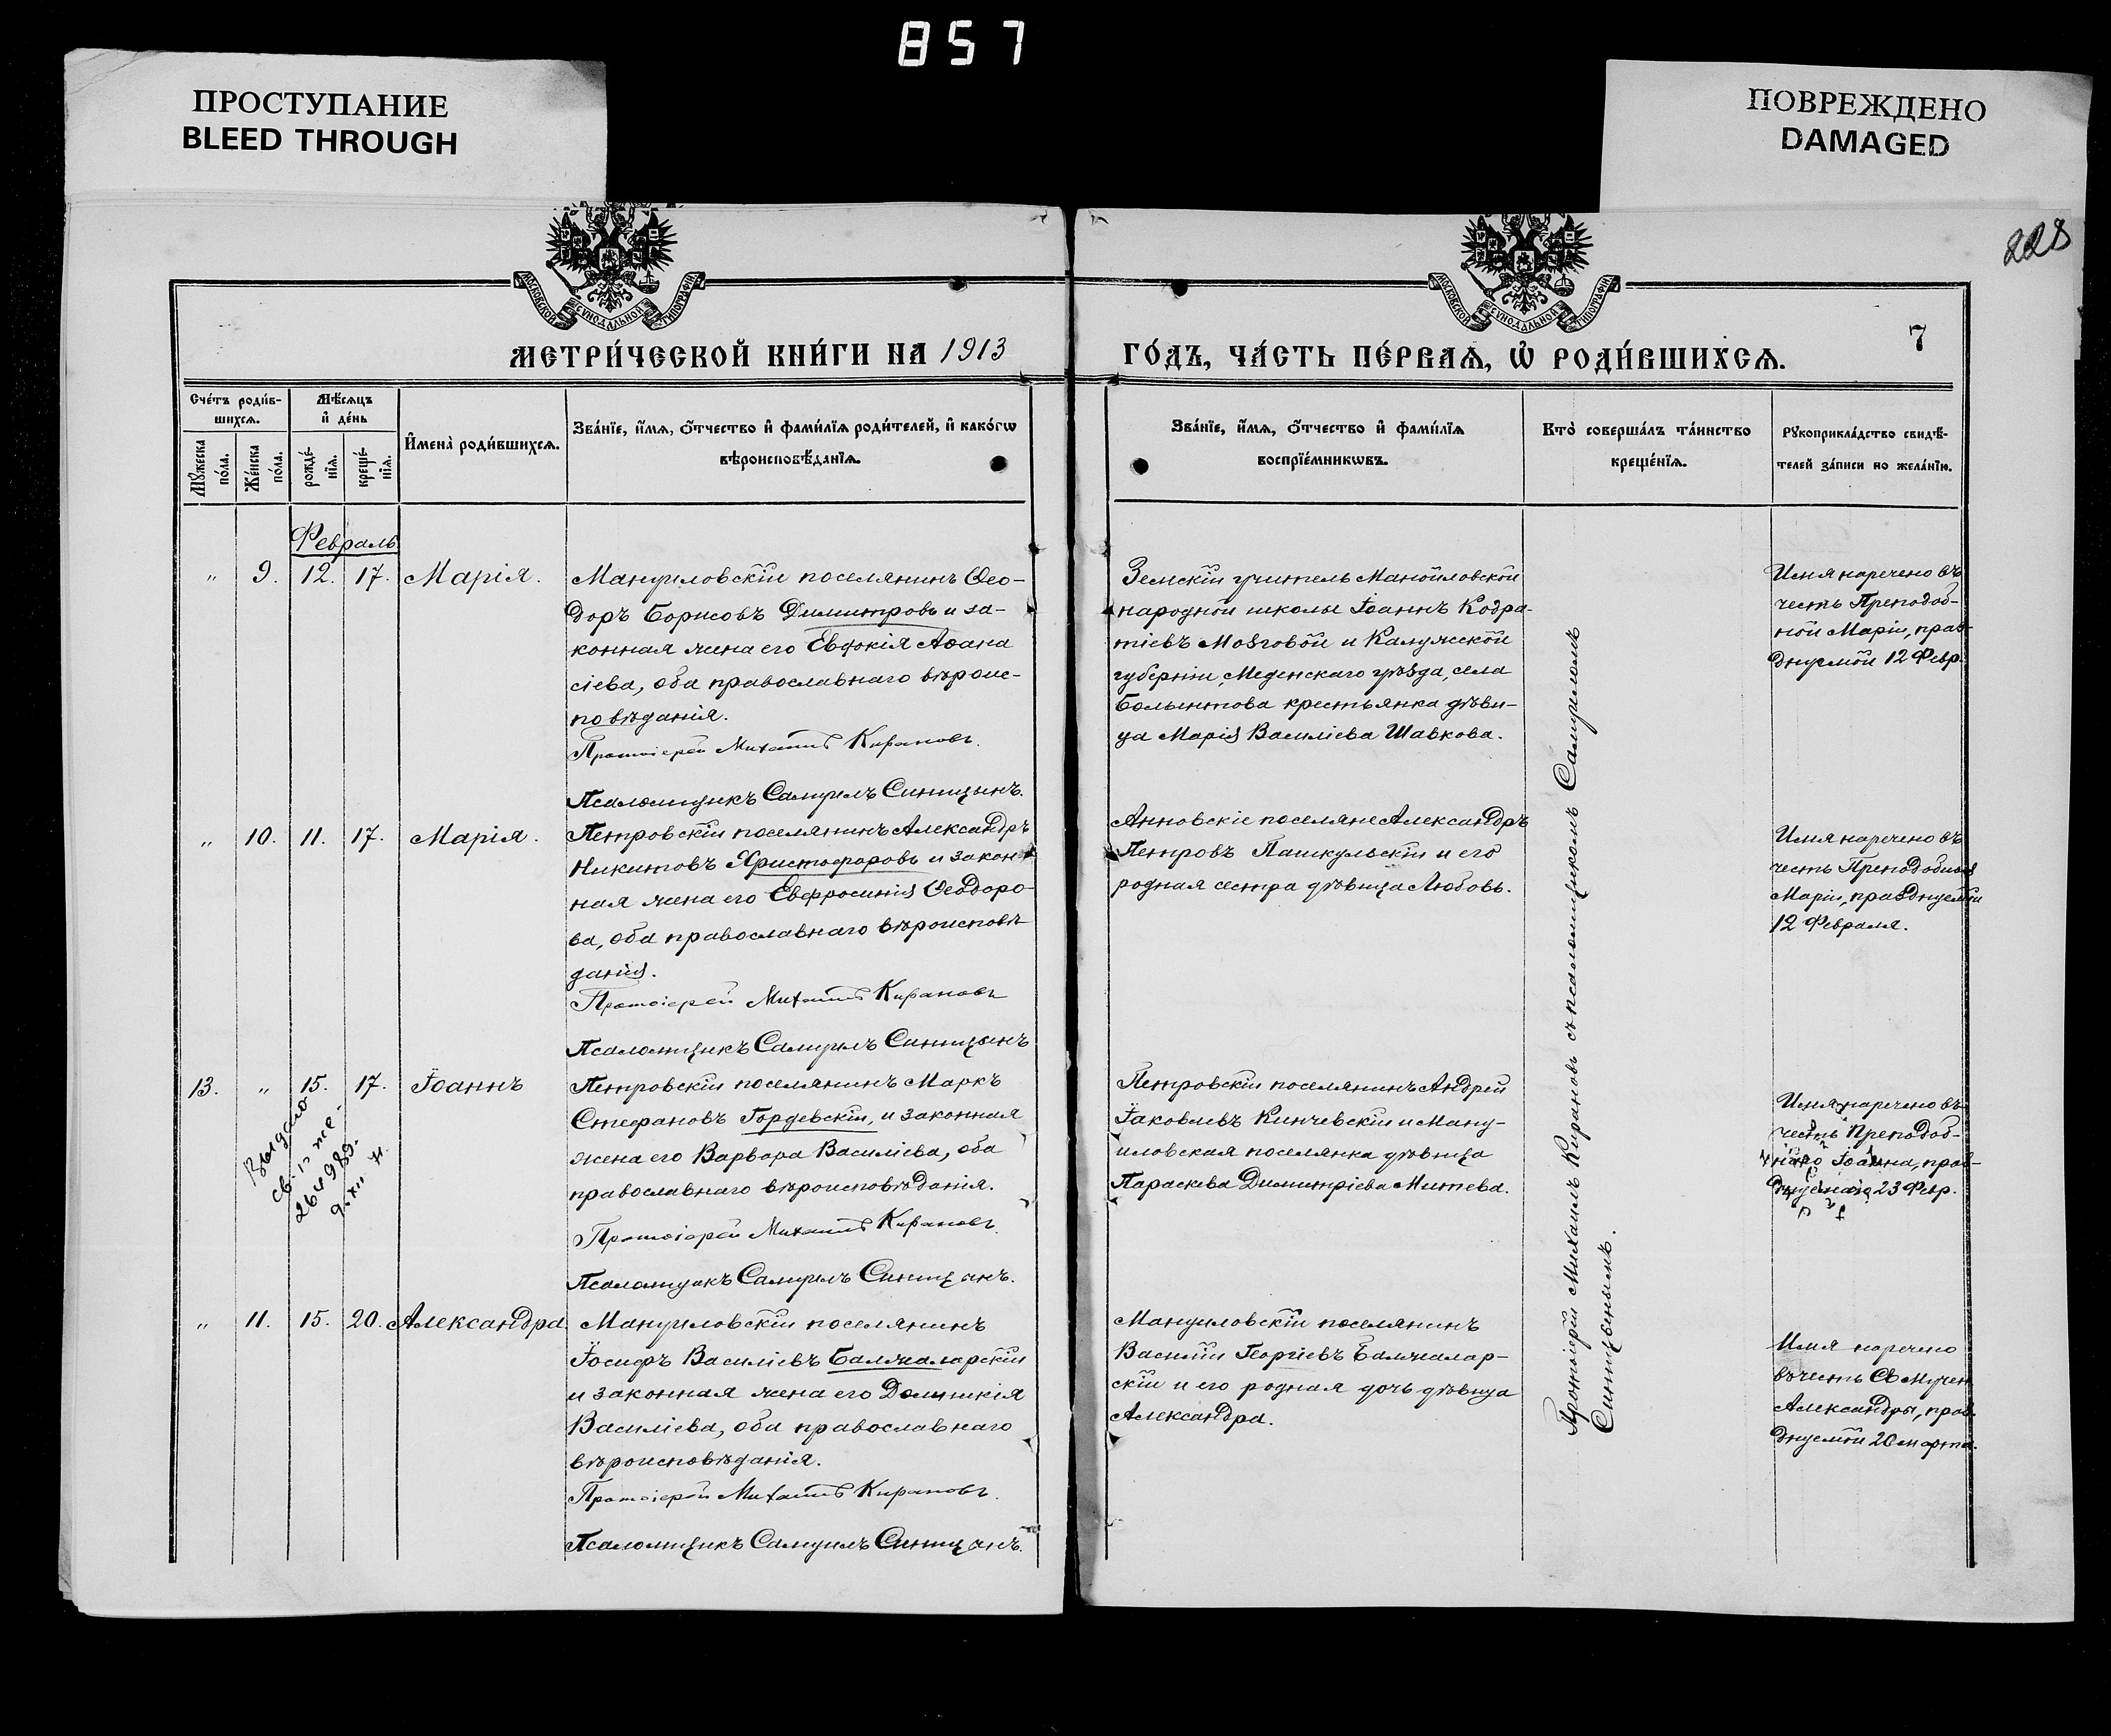 857
ПРОСТУПАНИЕ
BLEED THROUGH
ПОВРЕЖДЕНО
DAMAGED
228
МОСКОВСКОЙ СѴНОДАЛЬНОЙ ТИПОГРАФІИ
МОСКОВСКОЙ СѴНОДАЛЬНОЙ ТИПОГРАФІИ
7
МЕТРИ́ЧЕСКОЙ КНИ́ГИ НА 1913
ГО́ДЪ, ЧА́СТЬ ПЕ́РВАѦ, Ѡ҆ РОДИ́ВШИХСѦ.
Сче́тъ роди́в-
шихсѧ.
Мꙋ́жеска по́ла.
Же́нска по́ла.
Мѣ́сѧцъ
и҆ де́нь
рожде́-
нїѧ.
креще́-
нїѧ.
И҆мена̀ роди́вшихсѧ.
Зва́нїе, и҆́мѧ, о҆́тчество и҆ фами́лїѧ роди́телей, и҆ како́гѡ
вѣроисповѣ́данїѧ.
Зва́нїе, и҆́мѧ, о҆́тчество и҆ фами́лїѧ
воспрїе́мникѡвъ.
Кто̀ соверша́лъ та́инство
креще́нїѧ.
Рꙋкоприкла́дство свидѣ́-
телей за́писи по жела́нїю.
Февраль
" 9. 12. 17. Марія.
Мануиловскій поселянинъ Ѳео-
доръ Борисовъ Димитровъ и за-
конная жена его Евдокія Аѳана
сіева, оба православнаго вѣроис-
повѣданія.
Протоіерей Михаилъ Кирановъ.
Псаломщикъ Самуилъ Синицынъ.
Земскій учитель Манойловской
народной школы Іоаннъ Кодра-
тіевъ Мозговой и Калужской
губерніи, Меденскаго уѣзда, села
крестьянка дѣви-
ца Марія Василіева Шавкова.
Имя наречено въ
честь Преподоб-
ной Маріи, праз-
днуемой 12 Февр.
" 10. 11. 17. Марія.
Петровскій поселянинъ Александръ
Никитовъ Христофоровъ и закон-
ная жена его Евфросинія Ѳеодоро-
ва, оба православнаго вѣроисповѣ-
данія.
Протоіерей Михаилъ Кирановъ
Псаломщикъ Самуилъ Синицынъ
Анновскіе поселяне Александръ
Петровъ Пашкульскій и его
родная сестра дѣвица Любовь.
Имя наречено въ
честь Преподобной
Маріи, празднуемой
12 Февраля.
13. " 15. 17. Іоаннъ
Петровскій поселянинъ Маркъ
Стефановъ Гордевскій, и законная
жена его Варвара Василіева, оба
православнаго вѣроисповѣданія.
Протоіерей Михаилъ Кирановъ.
Псаломщикъ Самуилъ Синицынъ.
Петровскій поселянинъ Андрей
Іаковлевъ Кинчевскій и Ману-
иловская поселянка дѣвица
Параскева Димитріева Митева.
Имя наречено въ
честь Преподоб-
наго Іоанна, праз-
днуемаго 23 Февр.
Выдано
" 11. 15. 20. Александра.
Мануиловскій поселянинъ
Іосифъ Василіевъ Балжаларскій
и законная жена его Домникія
Василіева, оба православнаго
вѣроисповѣданія.
Протоіерей Михаилъ Кирановъ.
Псаломщикъ Самуилъ Синицынъ.
Мануиловскій поселянинъ
Василій Георгіевъ Балжалар-
скій и его родная дочь дѣвица
Александра.
Имя наречено
въ честь Св. Мучен
Александры, праз-
днуемой 20 марта.
Протоіерей Михаилъ Кирановъ съ псаломщикомъ Самуиломъ
Синицынымъ.